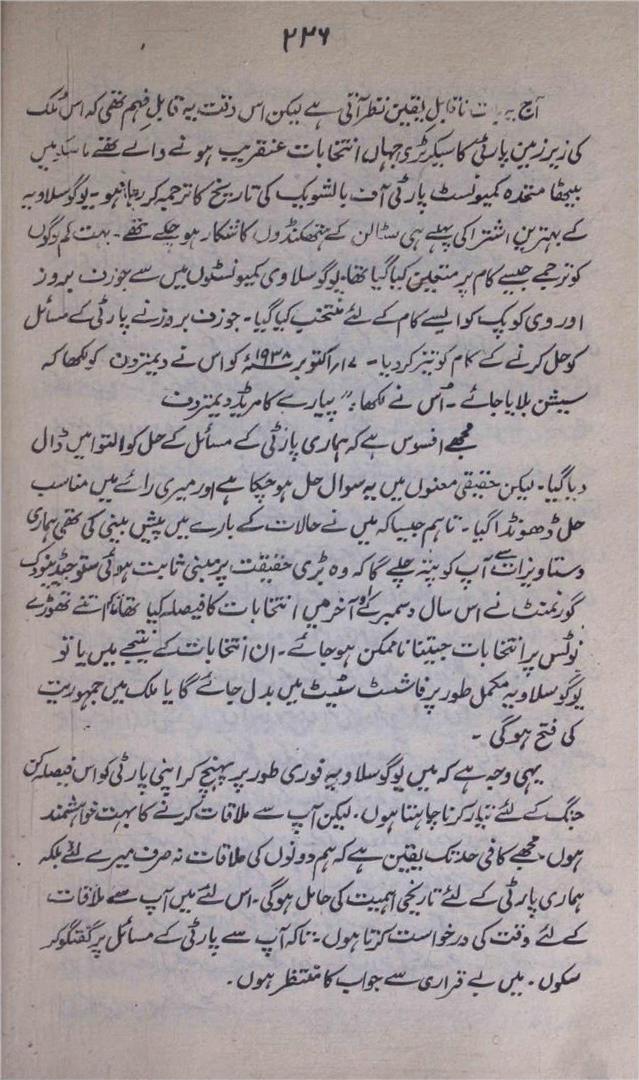 ۲۲۶
آج یہ بات ناقابل یقین نظر آتی ہے لیکن اس وقت یہ قابل فہم تھی کہ اس ملک
کی زیر زمین پارٹی کا سیکرٹری جہاں انتخابات عنقریب ہونے والے تھے ماسکو میں
بیٹھا متحدہ کمیونسٹ پارٹی آف بالشویک کی تاریخ کا ترجمہ کر رہا ہو۔ یوگوسلاویہ
کے بہترین اشتراکی پہلے ہی سٹالن کے ہتھکنڈوں کا شکار ہو چکے تھے۔ بہت کم لوگوں
کو ترجمے جیسے کام پر متعین کیا گیا تھا۔ یوگوسلاوی کمیونسٹوں میں سے جوزف بروز
اور وی کوپک کو ایسے کام کے لئے منتخب کیا گیا۔ جوزف بروز نے پارٹی کے مسائل
کو حل کرنے کے کام کو تیز کر دیا۔ ۱۷ اکتوبر ۱۹۳۸ء کو اس نے دیمتروف کو لکھا کہ
سیشن بلایا جائے۔ اُس نے لکھا، "پیارے کامریڈ دیمتروف
مجھے افسوس ہے کہ ہماری پارٹی کے مسائل کے حل کو التوا میں ڈال
دیا گیا۔ لیکن حقیقی معنوں میں یہ سوال حل ہو چکا ہے اور میری رائے میں مناسب
حل ڈھونڈا گیا۔ تاہم جیسا کہ میں نے حالات کے بارے میں پیش بینی کی تھی ہماری
دستاویزات سے آپ کو پتہ چلے گا کہ وہ بڑی حقیقت پر مبنی ثابت ہوئی
گورنمنٹ نے اس سال دسمبر کے اواخر میں انتخابات کا فیصلہ کیا تھا تاکہ اتنے تھوڑے
نوٹس پر انتخابات جیتنا ناممکن ہو جائے۔ ان انتخابات کے نتیجے میں یا تو
یوگوسلاویہ مکمل طور پر فاشسٹ سٹیٹ میں بدل جائے گا یا ملک میں جمہوریت
کی فتح ہو گی۔
یہی وجہ ہے کہ میں یوگوسلاویہ فوری طور پر پہنچ کر اپنی پارٹی کو اس فیصلہ کن
جنگ کے لئے تیار کرنا چاہتا ہوں۔ لیکن آپ سے ملاقات کرنے کا بہت خواہشمند
ہوں۔ مجھے کافی حد تک یقین ہے کہ ہم دونوں کی ملاقات نہ صرف میرے لئے بلکہ
ہماری پارٹی کے لئے تاریخی اہمیت کی حامل ہو گی۔ اس لئے میں آپ سے ملاقات
کے لئے وقت کی درخواست کرتا ہوں۔ تاکہ آپ سے پارٹی کے مسائل پر گفتگو کر
سکوں۔ میں بے قراری سے جواب کا منتظر ہوں۔